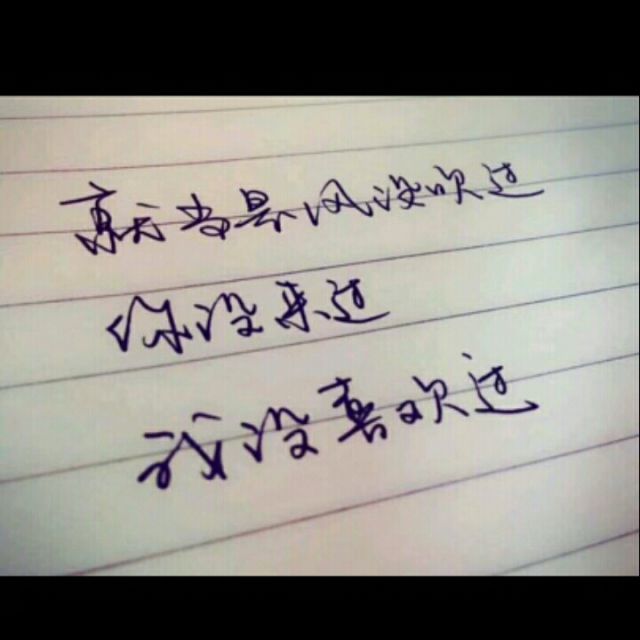 夏天当是风没吹过
你没来过
我没喜欢过